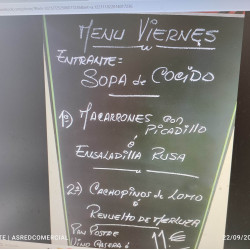 MENU VIERNES
ENTRANTE=
SOPA de COCIDO
1º) MACARRONES con
PICADILLO
ó
ENSALADILLA RUSA
2º) CACHOPINOS de LOMO
ó
REVUELTO DE MERLUZA
PAN POSTRE
VINO CASERA ó
11€
TE | ASREDCOMERCIAL
22/09/20